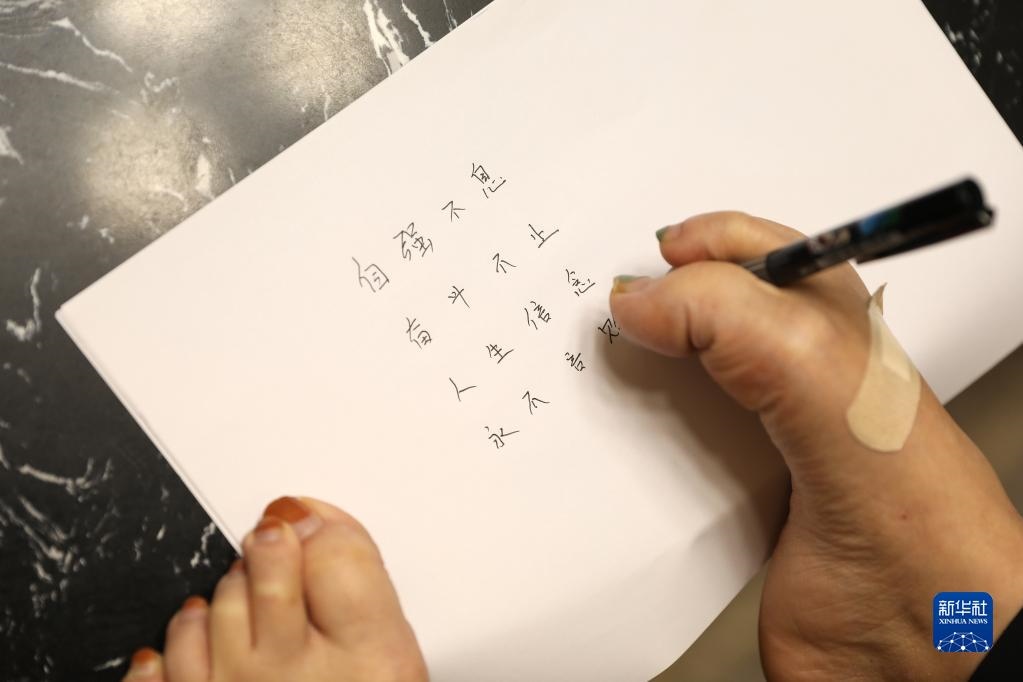 自强不息
奋斗不止
人生信念
永不言
新华社
XINHUA NEWS